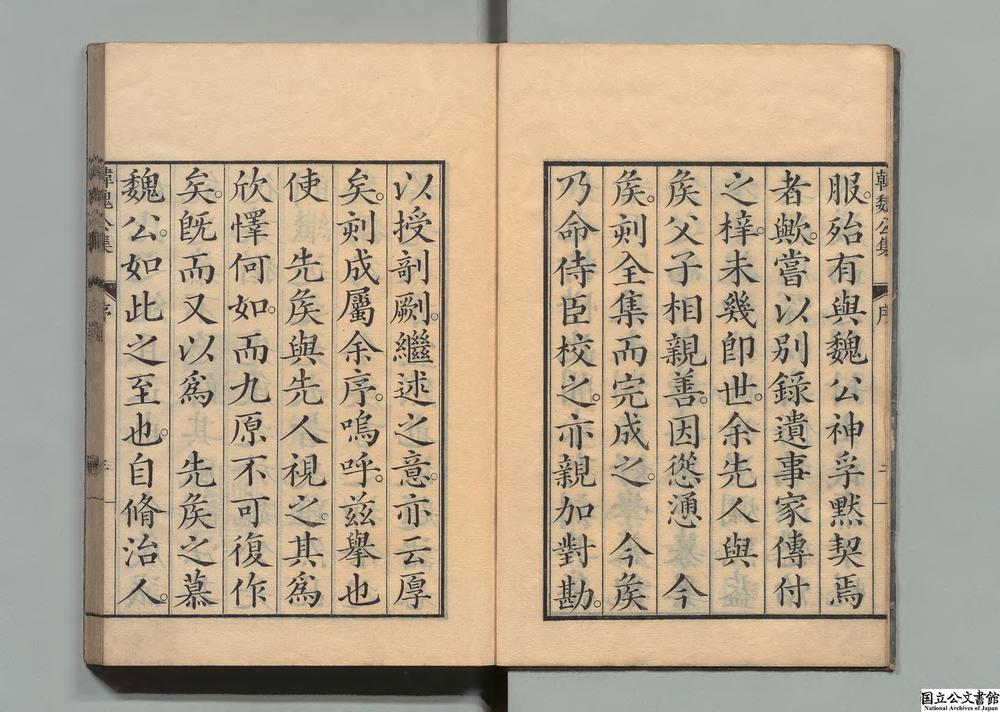 韓魏公集
序
服。殆有與魏公神孚黙契焉
者歟。嘗以別錄遺事家傳付
之梓。未幾卽世。余先人與
矦父子相親善。因慫慂　今
矦。刻全集而完成之。　今矦
乃命侍臣校之。亦親加對勘。
以授剞劂。繼述之意。亦云厚
矣。刻成屬余序。嗚呼。茲擧也
使　先矦與先人視之。其爲
欣懌何如。而九原不可復作
矣。旣而又以爲　先矦之慕
魏公。如此之至也。自脩治人。
韓魏公集
序
国立公文書館
National Archives of Japan